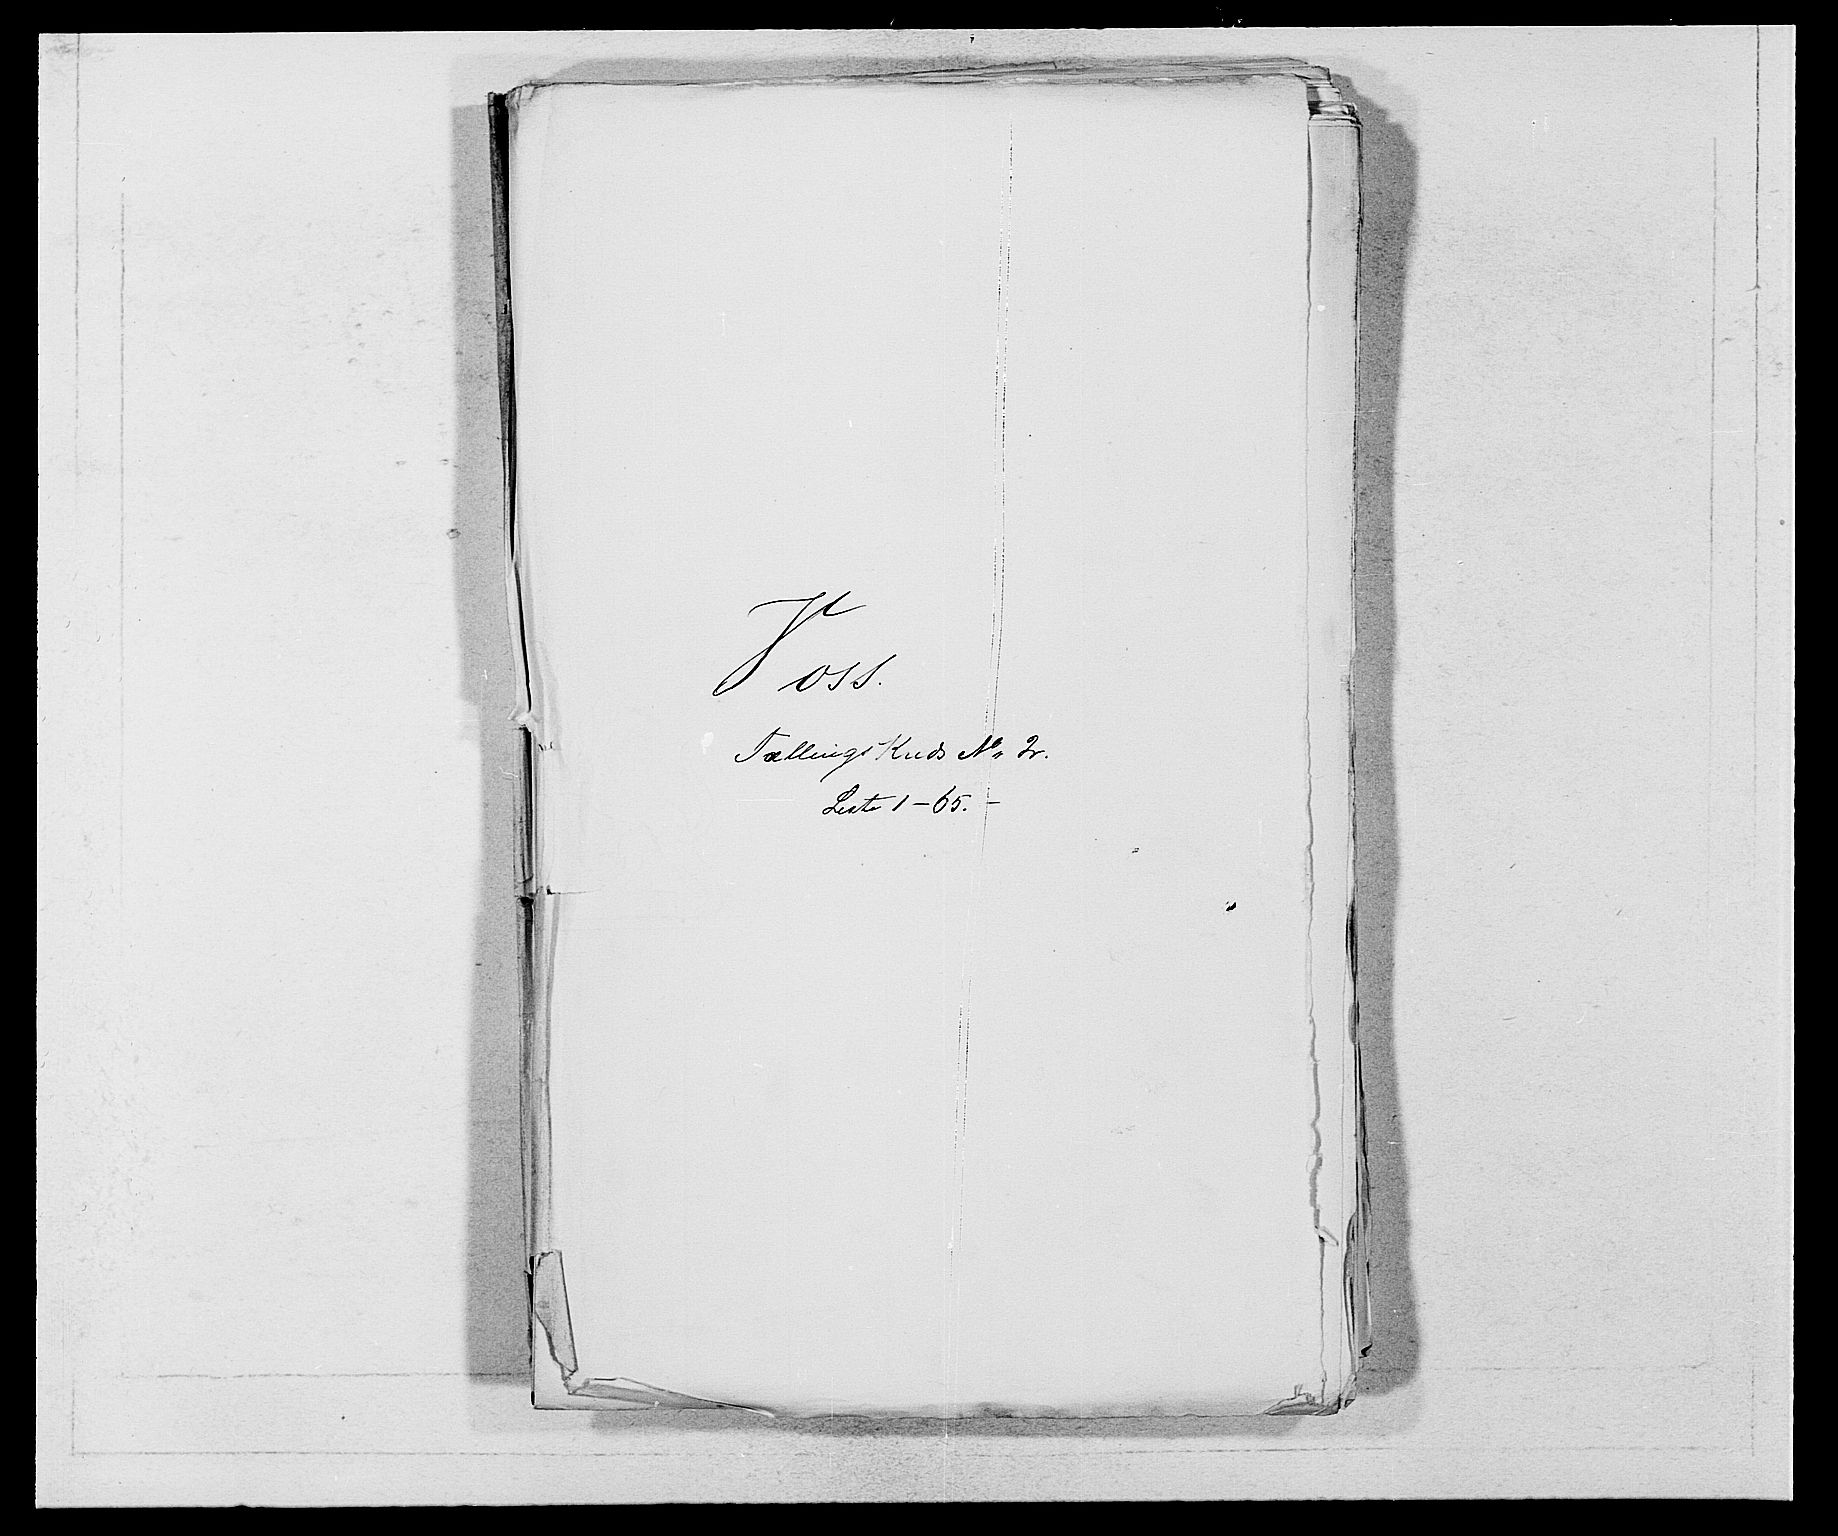 Voss.
Tællings Kreds No 2.
Liste 1-65. -